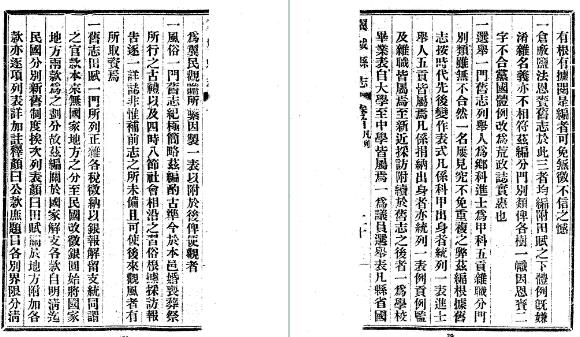 有根有據閱是編者可免無徵不信之憾
一倉廒鹽法恩賚舊志於此三者均編附田賦之下體例旣嫌
淆雜名義亦不相符茲編分門別類俾各樹一幟因恩賚二
字不合黨國體例改為荒政誌實惠也
一選舉一門舊志列舉人為鄉科進士為甲科五貢雜職分門
別類雖無不合然一名屢見究不免重複之弊茲編根據舊
志按時代先後變作表式凡係科甲出身者統列一表進士
舉人五貢皆屬焉凡係捐納出身者亦統列一表例貢例監
及雜職皆屬焉至新近採訪附續於舊志之後者一為學校
畢業表自大學至中學皆屬焉一為議員選舉表凡縣省國
翼城縣志 卷首 凡例
為翼民觀聽所繫因製一表以附於後俾便觀者
一風俗一門舊志紀極簡略茲編酌古準今於本邑婚喪葬祭
所行之古禮以及四時八節社會相沿之習俗根據採訪報
告逐一詳誌非惟補前志之所未備且可使後來觀風者有
所取資焉
一舊志田賦一門所列正雜各稅徵納以銀報解留支統同謂
之官款本來無國家地方之分至民國改徵銀圓始將國家
地方兩款為之劃分故茲編關於國家解支各款自明清迄
民國分別新舊制度挨次列表顏曰田賦關於地方附加各
款亦逐項列表詳加註釋顏曰公款庶題目各別界限分清